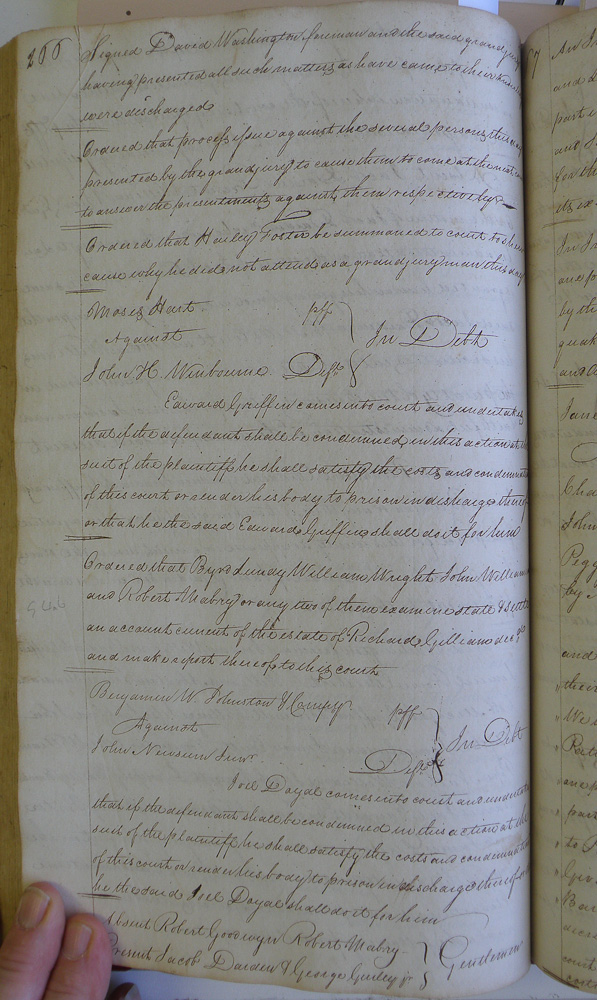 266
Signed David Washington foreman and the said grand jury
having presented all such matters as have came to their
were discharged
Ordered that process issue against the several persons this day
presented by the grand jury to cause them to come at the next
to answer the presentments against them respectively
Ordered that Hailey Foster be summoned to court to shew
cause why he did not attend as a grand jury man this day
Moses Hart plff
Against
In Debt
John H. Winbourne Deft
Edward Griffin comes into court and undertakes
that if the defendant shall be condemned in this action at the
suit of the plaintiff he shall satisfy the costs and condemnation
of this court or render his body to prison in discharge thereof
or that he the said Edward Griffin shall do it for him
Ordered that Byrd Lundy William Wright John William
and Robert Mabry or any two of them examine state & settle
an account current of the estate of Richard Gilliam decd
and make report thereof to this court
Benjamin W. Johnston & Compy plff
Against
In Debt
John Newsum Junr Deft
Joel Doyal comes into court and undertakes
that if the defendant shall be condemned in this action at the
suit of the plaintiff he shall satisfy the costs and condemnation
of this court or render his body to prison in discharge thereof or
he the said Joel Doyal shall do it for him
Absent Robert Goodwyn Robert Mabry
Gentlemen
Present Jacob Darden & George Gurley jr